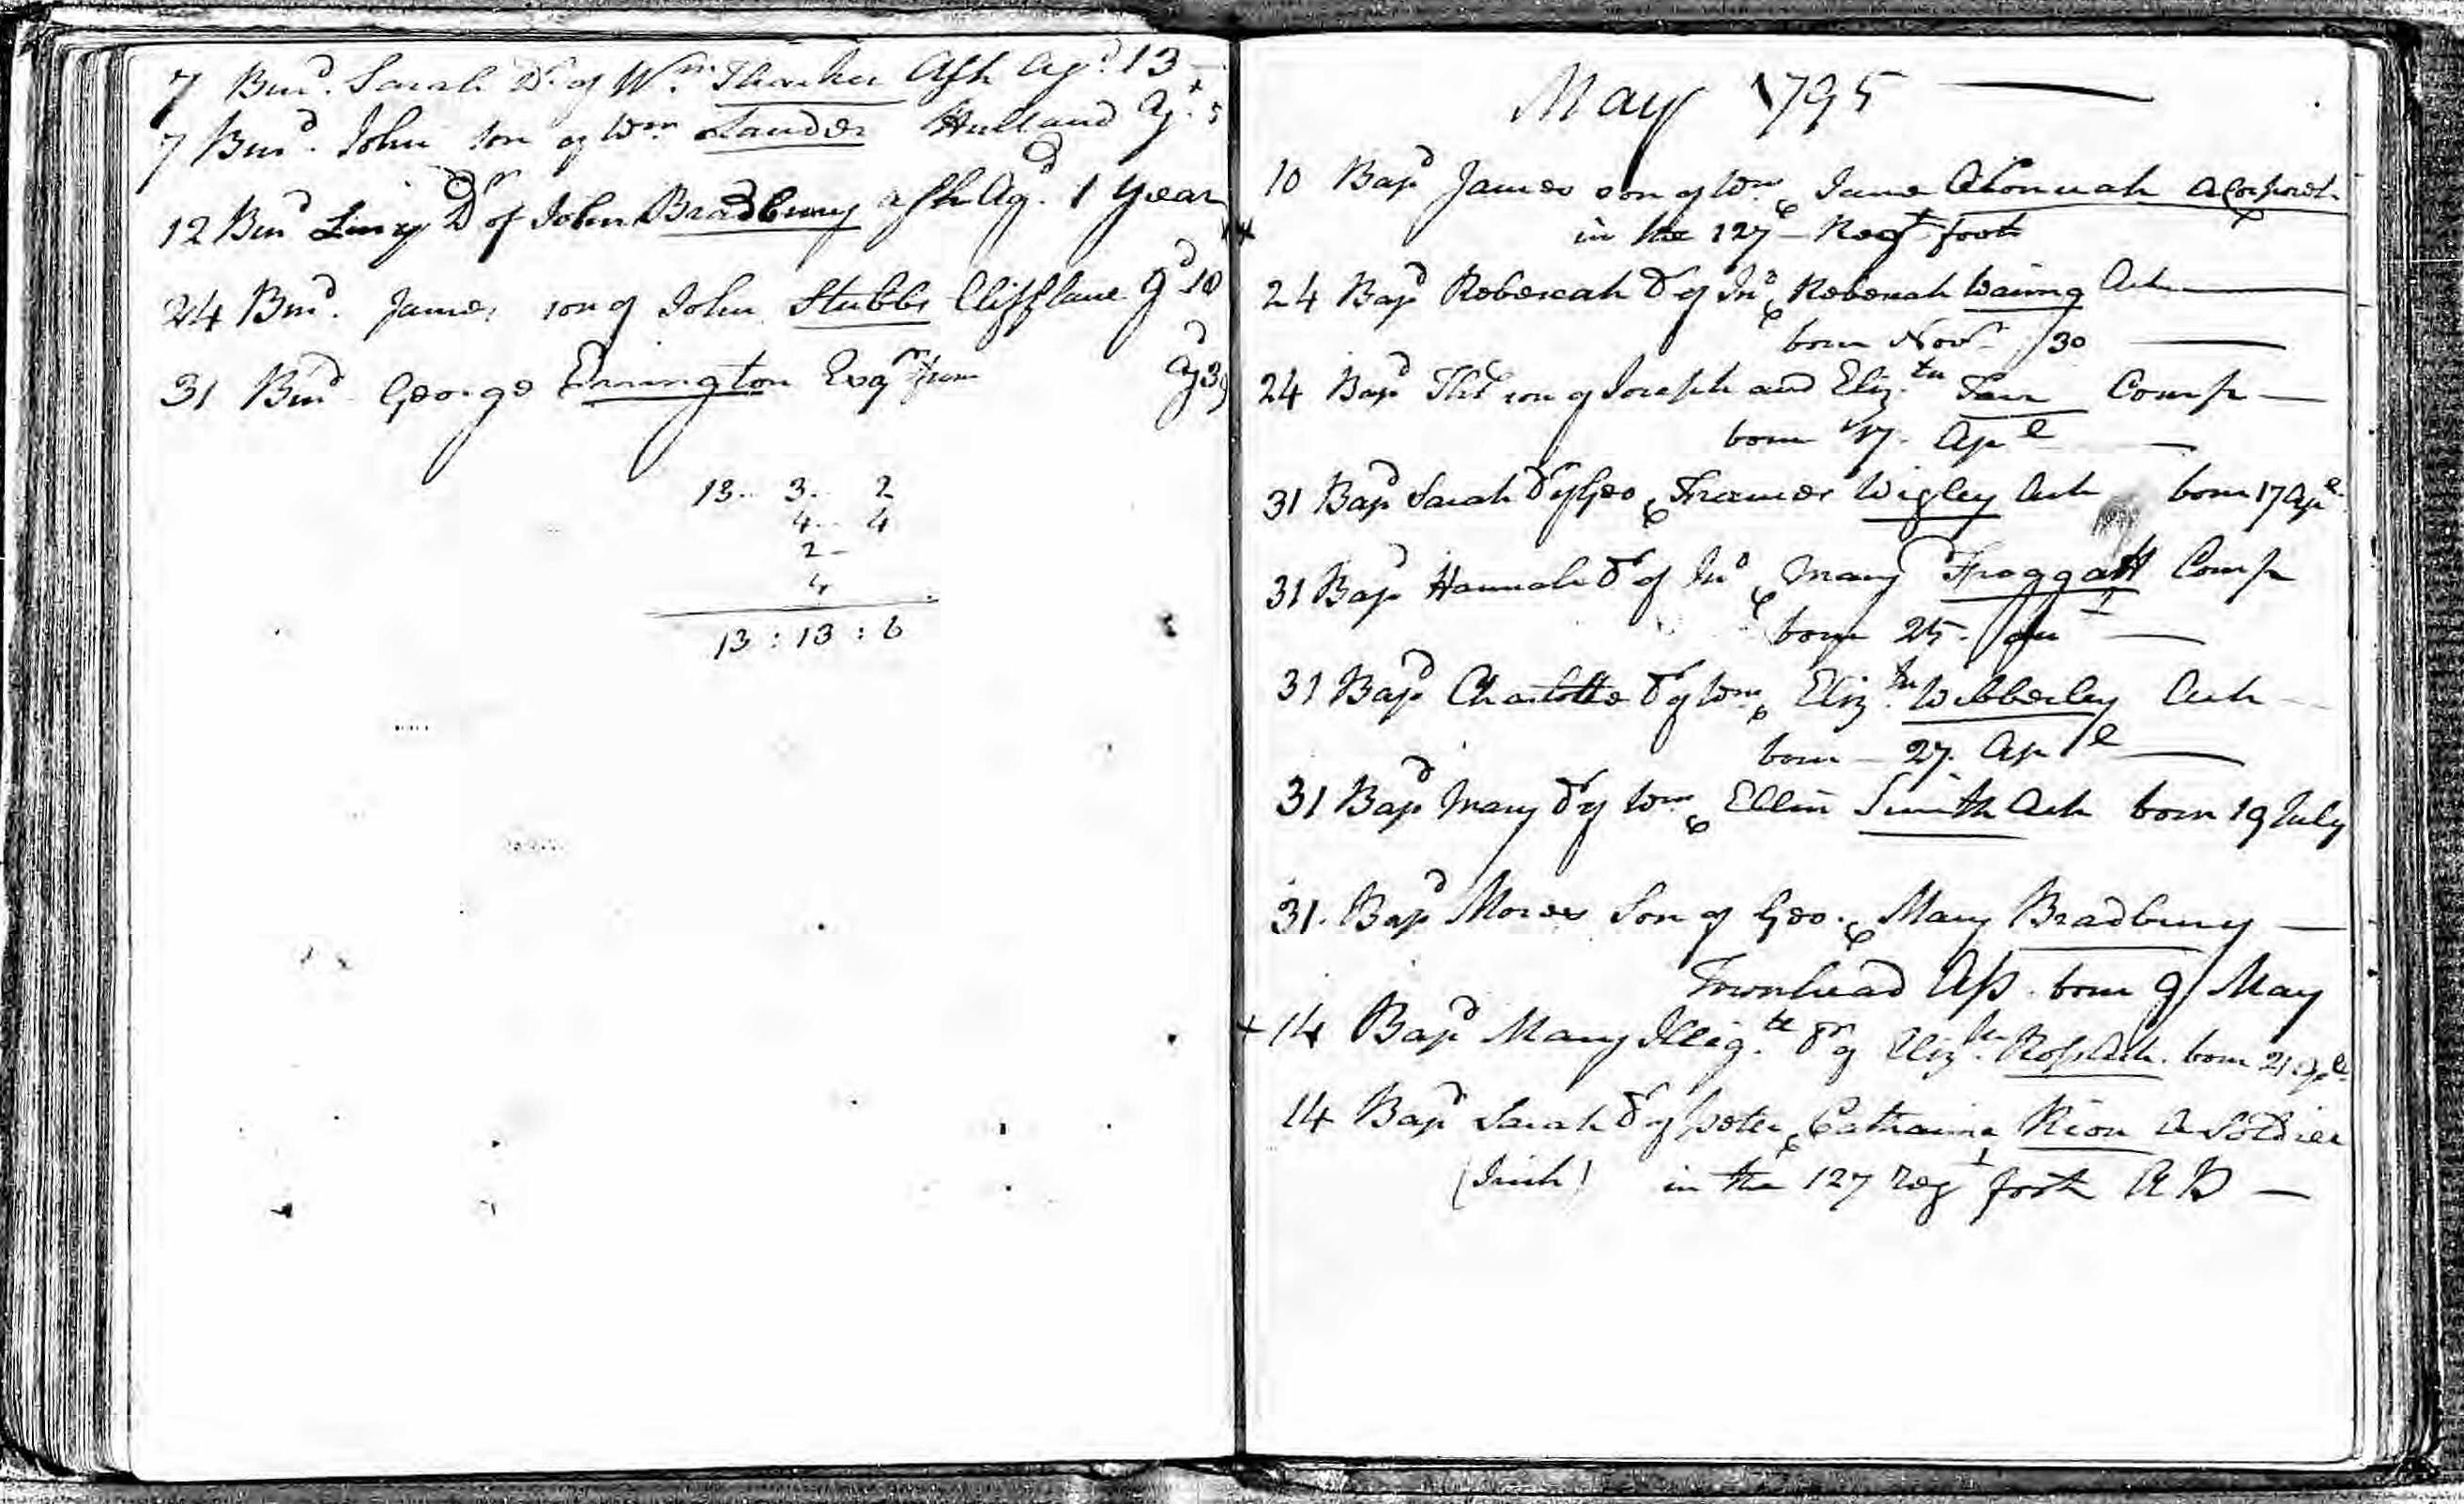 7 Burd. Sarah Dr. of Wm. Tharker Ash Agd. 13
7 Burd. John son of Wm Lander Hulland Agd. 5
12 Burd Dr of John Bradbury Ash Agd. 1 Year
24 Burd. James son of John Stubbs Clifflane Agd 10
31 Burd George Errington Esqr from Agd 39
13.. 3.. 2
4.. 4
2 -
4
13 : 13 : 6
May 1795
10 Bapd James son of Wm & Jane a Corporal
in the 127 - Regt foot
24 Bapd Rebeccah Dr of Jno & Rebecah Waring Ash
born Novr 30
24 Bapd Thos son of Joseph and Elizth Farr Comp
born 17. Apl
31 Bapd Sarah Dr of Geo & Frances Wigley Ash born 17 Apl
31 Bapd Hannah Dr of Jno & Mary Froggatt Comp
born 25.
31 Bapd Charlotte Dr of Wm & Elizth Wibberley Ash
born 27. Apl
31 Bapd Mary Dr of Wm & Ellin Smith Ash born 19 July
31. Bapd Moses Son of Geo. & Mary Bradbury
Townhead born 9 May
+ 14 Bapd Mary Illigte Dr of Elizth Ross Ash. born 21 Apl
14 Bapd Sarah Dr of Peter & Catharine Rion a Soldier
(Irish) in the 127 regt foot AB